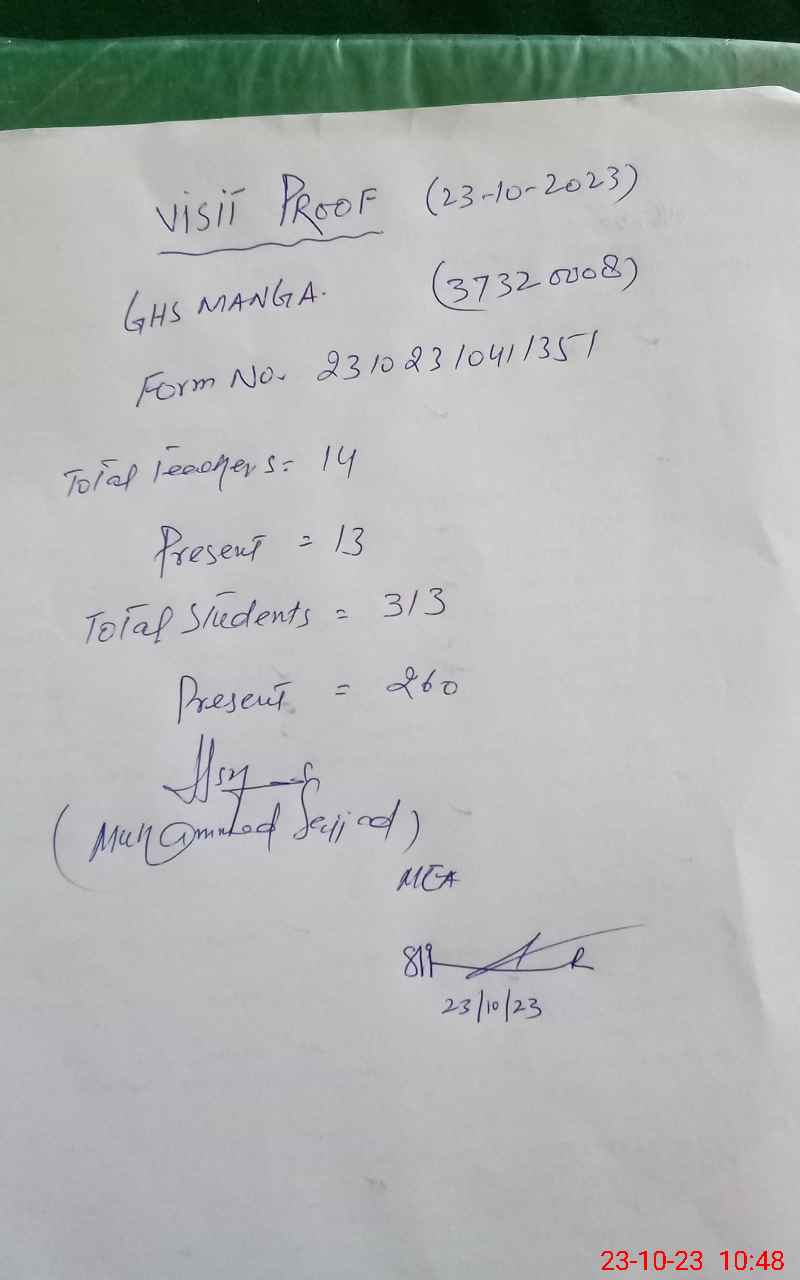 VISIT PROOF (23-10-2023)
GHS MANGA. (37320008)
Form No. 23102310411351
Total Teachers = 14
Present = 13
Total Students = 313
Present = 260
(Muhammad Sajjad)
MEA
23/10/23
23-10-23 10:48